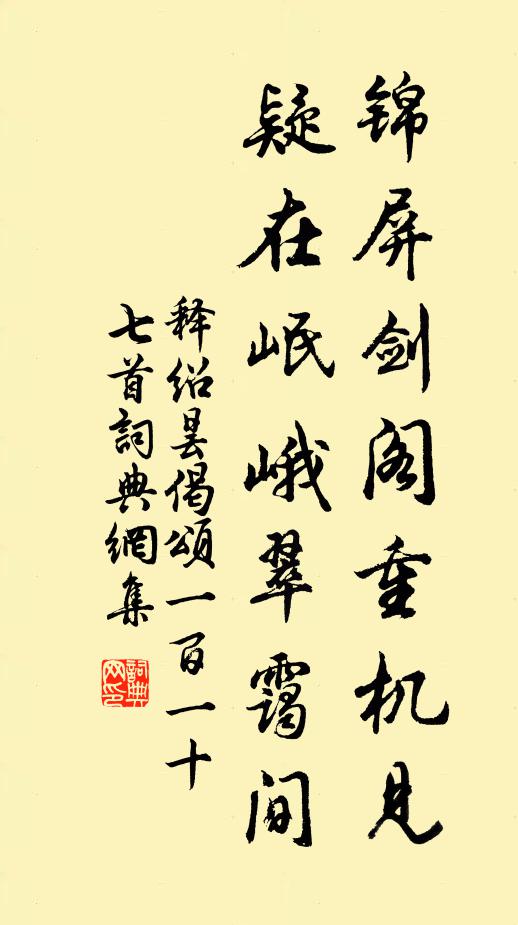 锦屏剑阁重机见
疑在岷峨翠霭间
释绍昙偈颂一百一十
七首詞典網集
詞典网印